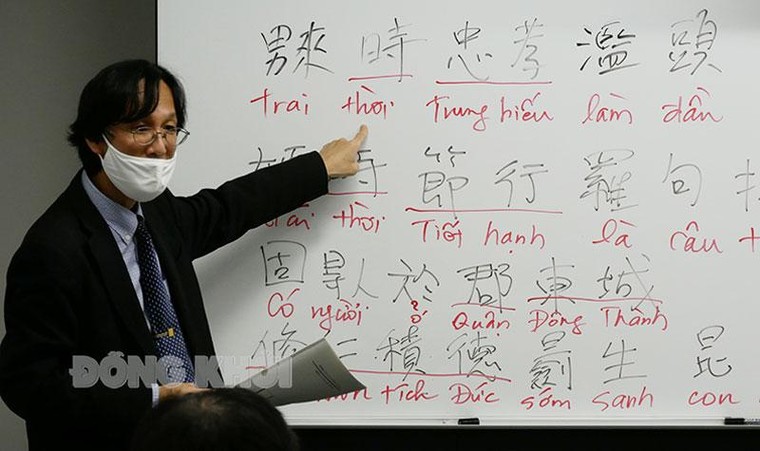 𤳆 時 忠 孝 濫 頭
trai thời trung hiếu làm đầu
時 節 行 羅 句
gái thời Tiết hạnh là câu
固 𠊛 於 郡 東 城
Có người ở Quận Đông Thành
積 德 生 昆
tích Đức sớm sanh con
ĐỒNG KHỞI